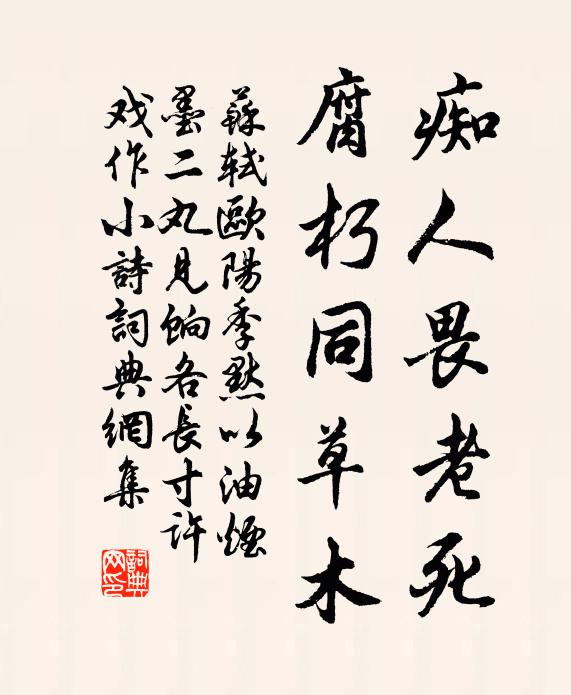 痴人畏老死
腐朽同草木
蘇軾歐陽季默以油煙
墨二丸見餉各長寸許
戏作小詩詞典網集
詞典
网印